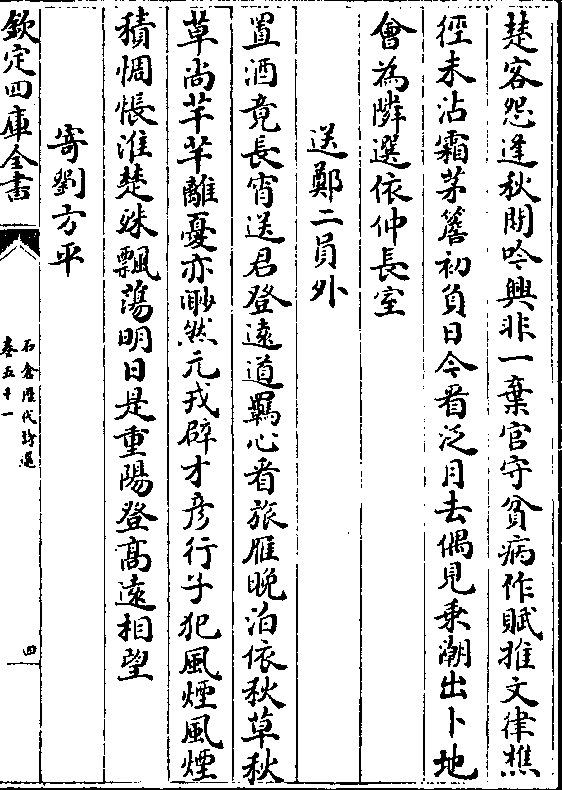 楚客怨逢秋閒吟興非一棄官守貧病作賦推文律樵
徑未沾霜茅簷初負日今看泛月去偶見乗潮出卜地
會為隣選依仲長室
送鄭二員外
置酒竟長宵送君登遠道羈心看旅雁晚泊依秋草秋
草尚芊芊離憂亦眇然元戎辟才彦行子犯風煙風煙
積惆悵淮楚殊飄蕩明日是重陽登髙遠相望
寄劉方平
欽定四庫全書
石倉歴代詩選
卷五十一
四